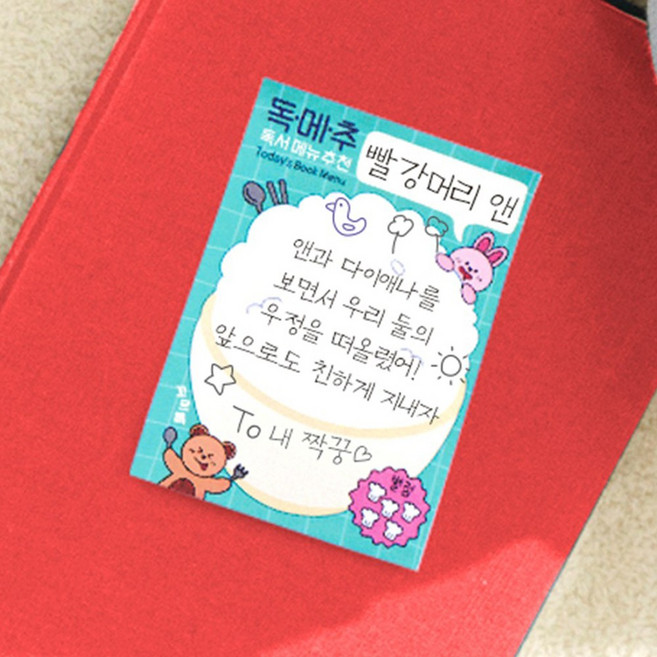 독·메·추
독서메뉴추천
Today's Book Menu
빨강머리 앤
앤과 다이애나를
보면서 우리 둘의
우정을 떠올렸어!
앞으로도 친하게 지내자
To 내 짝꿍♡
별점